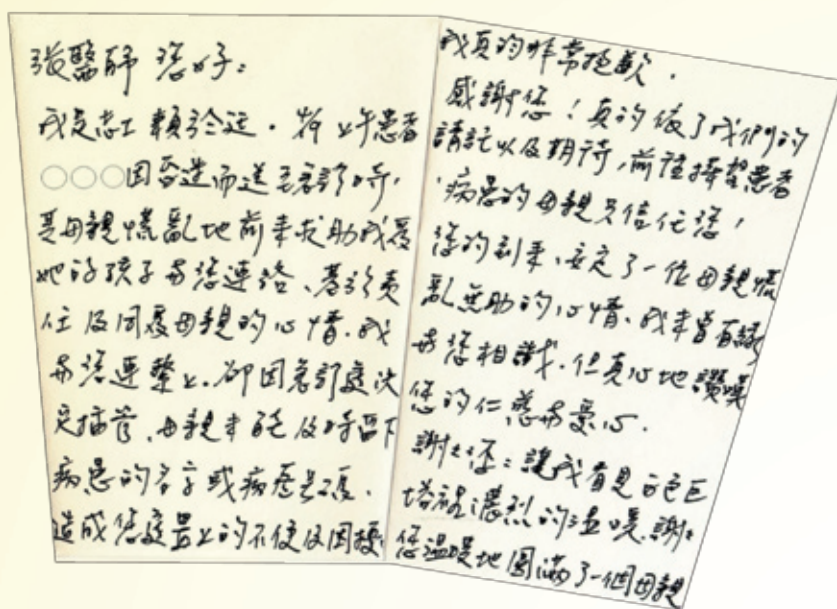 張醫師 您好：
我是志工賴於廷．於上午患者
○○○因昏迷而送至急診時，
其母親慌亂地前來求助我愛
她的孩子與您連絡、基於責
任及同愛母親的心情．我
與您連繫上．卻因急診處決
定插管、母親未能及時留下
病患的名字或病歷號碼．
造成您處置上的不便及困擾
我真的非常抱歉．
感謝您！真的依了我們的
請託以及期待，前往探望患者
，病患的母親只信任您，
您的到來、安定了一位母親慌
亂無助的心情、我未曾有緣
與您相識．但真心地讚嘆
您的仁慈與愛心．
謝謝您：讓我看見白色巨
塔裡濃烈的溫暖．謝謝
您溫暖地圓滿了一個母親